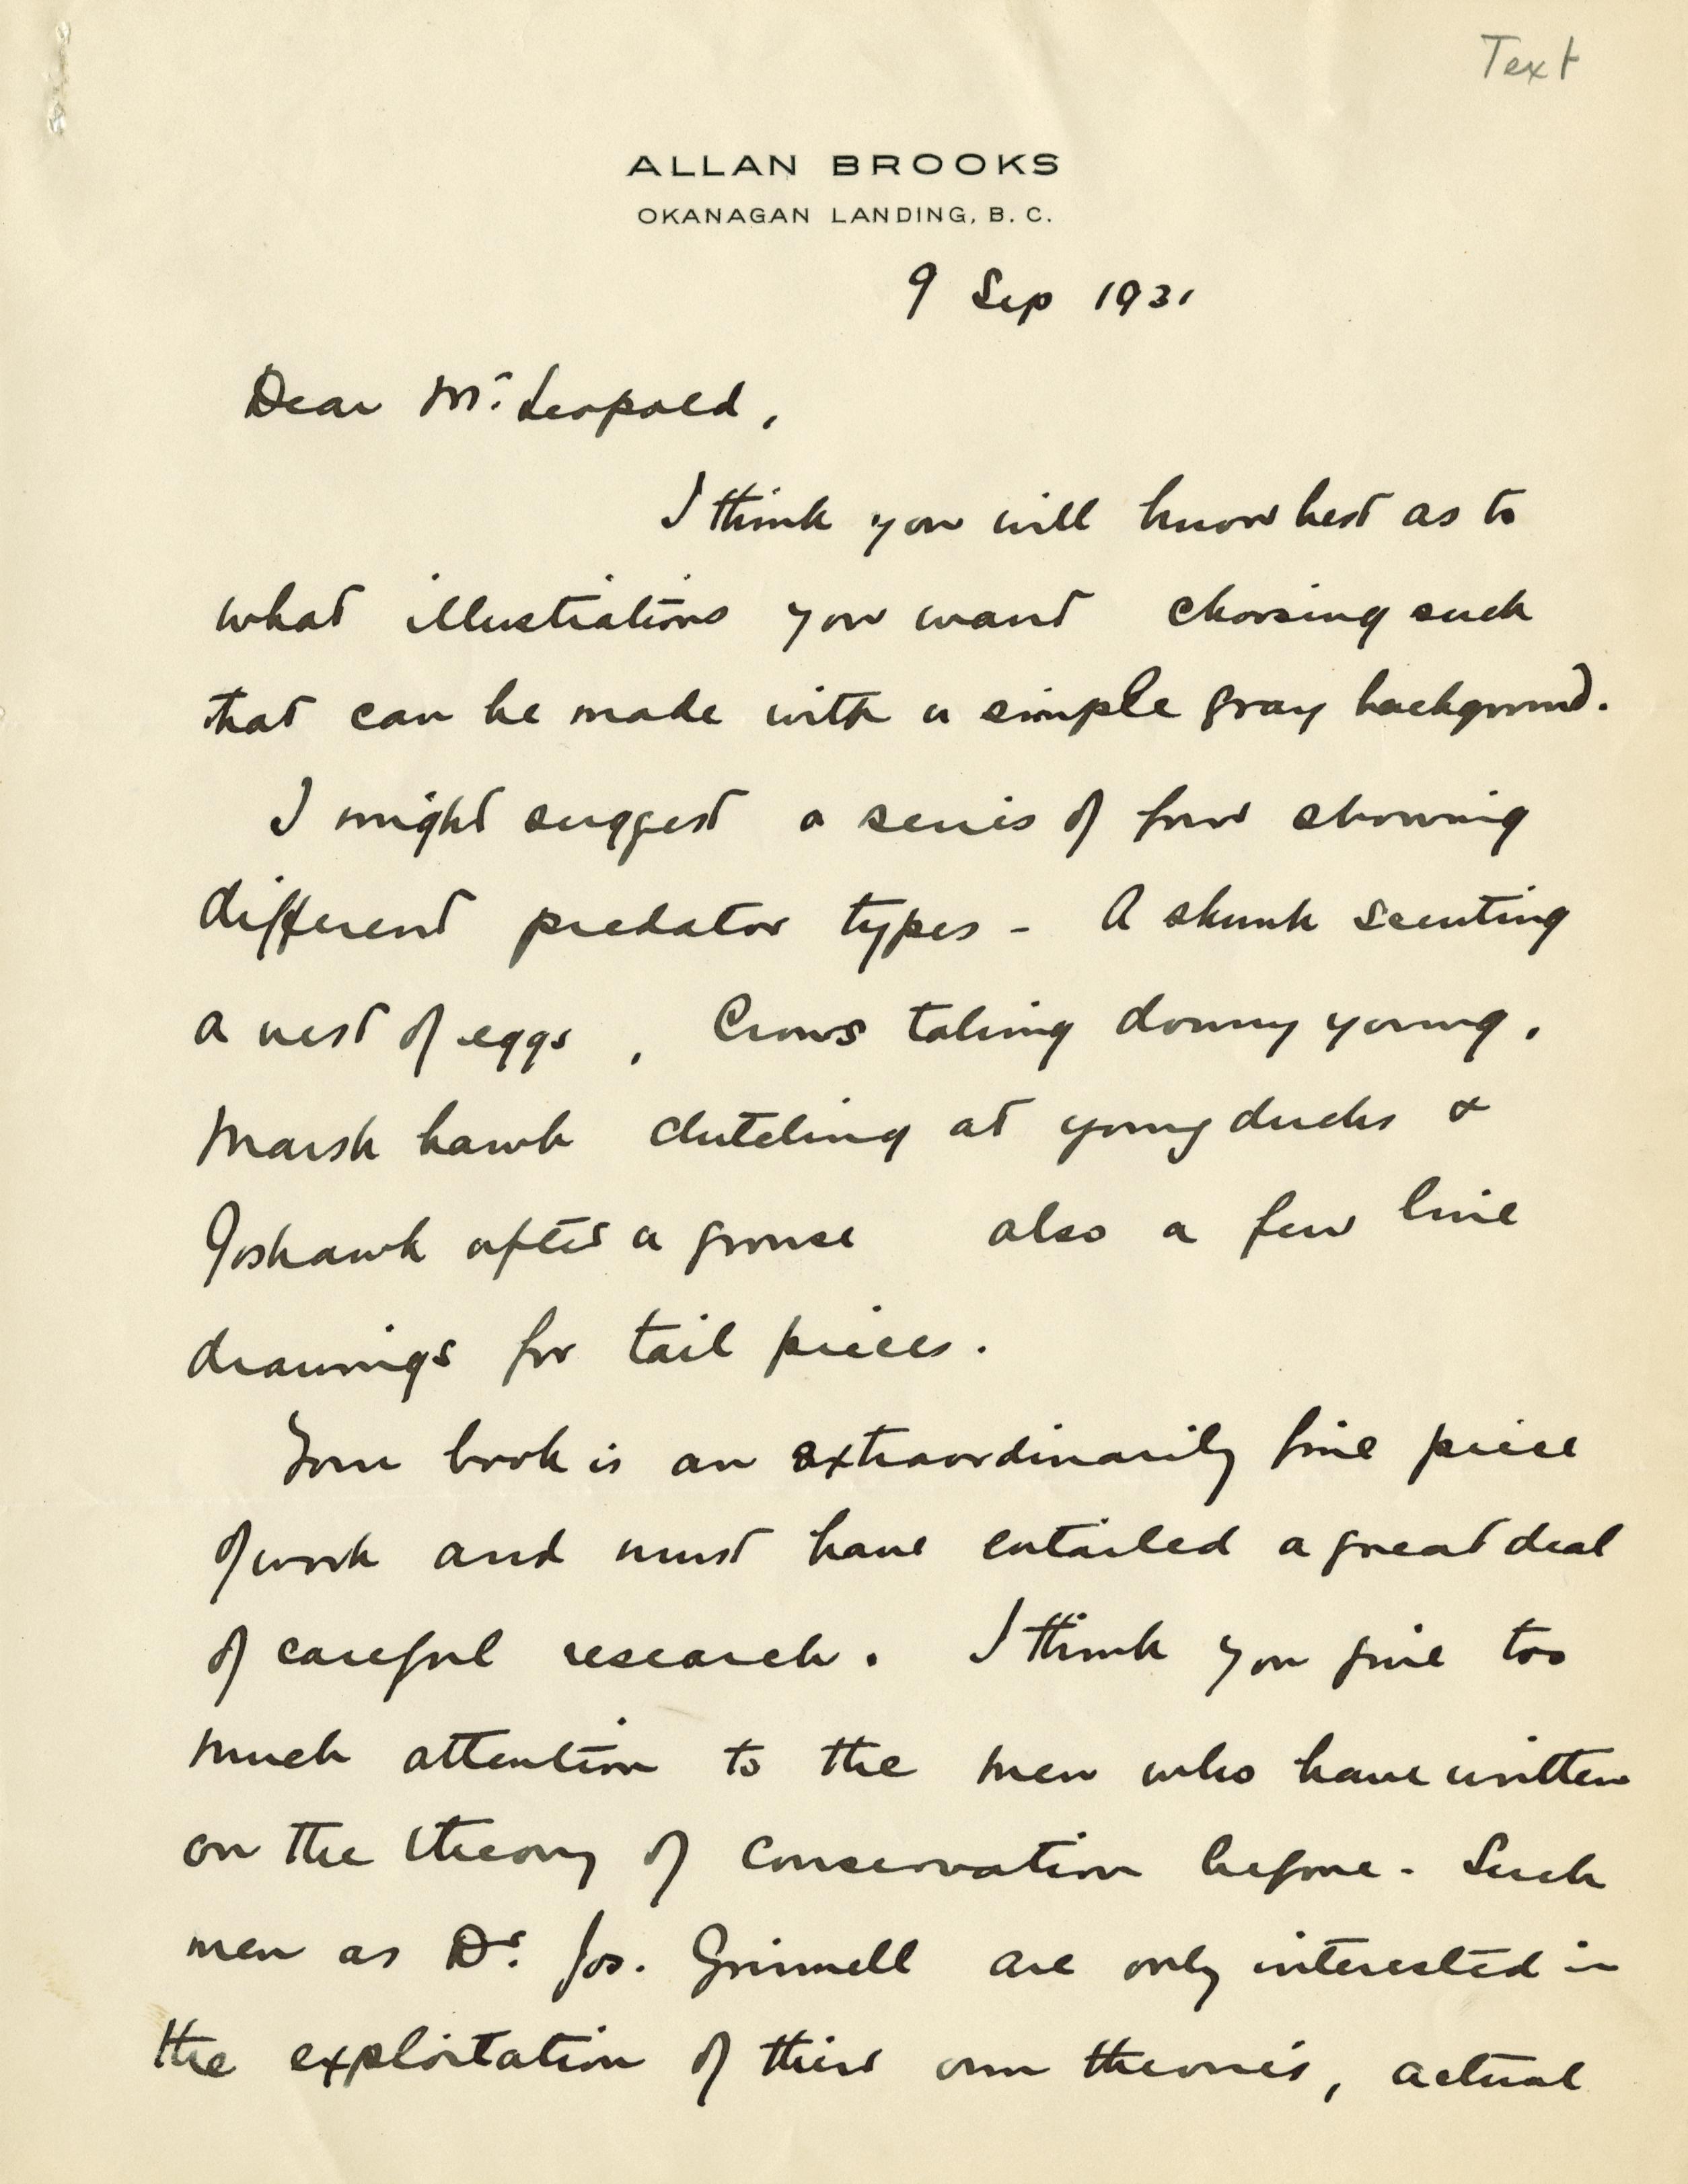 Text
ALLAN BROOKS
OKANAGAN LANDING, B. C.
9 Sep 1931
Dear Mr. Leopold,
I think you will know best as to
what illustrations you want choosing such
that can be made with a simple gray background.
I might suggest a series of four showing
different predator types - A skunk scenting
a nest of eggs , Crows taking downy young,
Marsh hawk clutching at young ducks &
Goshawk after a grouse also a few line
drawings for tail pieces.
Your book is an extraordinarily fine piece
of work and must have entailed a great deal
of careful research. I think you give too
much attention to the men who have written
on the theory of conservation before. Such
men as Dr. Jos. Grinnell are only interested in
the exploitation of their own theories, actual